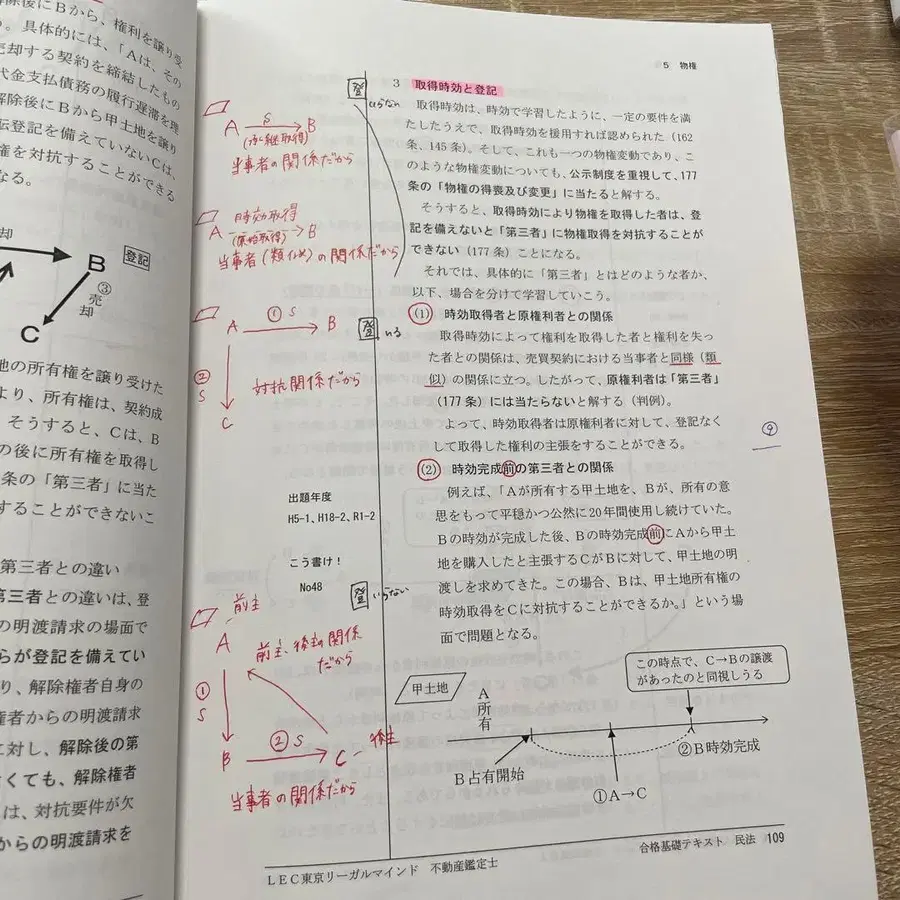 解除後にBから、権利を譲り受
。具体的には、「Aは、その
売却する契約を締結したもの
代金支払債務の履行遅滞を理
解除後にBから甲土地を譲り
転登記を備えていないCは、
権を対抗することができる
なる。
却
B
登記
③
売却
C
地の所有権を譲り受けた
より、所有権は、契約成
そうすると、Cは、B
の後に所有権を取得し
条の「第三者」に当た
することができないこ
第三者との違い
三者との違いは、登
の明渡請求の場面で
らが登記を備えてい
り、解除権者自身の
権者からの明渡請求
に対し、解除後の第
くても、解除権者
は、対抗要件が欠
からの明渡請求を
5 物権
登
いらない
A S B
(承継取得)
当事者の関係だから
時効取得
A (原始取得) B
当事者(類似)の関係だから
A ① S B
登 いる
② S
対抗関係だから
C
出題年度
H5-1、H18-2、R1-2
こう書け!
No48
登 いらない
前主
A
前主、後主の関係
だから
① S
B ② S C 後主
当事者の関係だから
3 取得時効と登記
取得時効は、時効で学習したように、一定の要件を満
たしたうえで、取得時効を援用すれば認められた(162
条、145条)。そして、これも一つの物権変動であり、こ
のような物権変動についても、公示制度を重視して、177
条の「物権の得喪及び変更」に当たると解する。
そうすると、取得時効により物権を取得した者は、登
記を備えないと「第三者」に物権取得を対抗することが
できない(177条)ことになる。
それでは、具体的に「第三者」とはどのような者か、
以下、場合を分けて学習していこう。
(1) 時効取得者と原権利者との関係
取得時効によって権利を取得した者と権利を失っ
た者との関係は、売買契約における当事者と同様(類
似)の関係に立つ。したがって、原権利者は「第三者」
(177条)には当たらないと解する(判例)。
よって、時効取得者は原権利者に対して、登記なく
して取得した権利の主張をすることができる。
(2) 時効完成前の第三者との関係
例えば、「Aが所有する甲土地を、Bが、所有の意
思をもって平穏かつ公然に20年間使用し続けていた。
Bの時効が完成した後、Bの時効完成前にAから甲土
地を購入したと主張するCがBに対して、甲土地の明
渡しを求めてきた。この場合、Bは、甲土地所有権の
時効取得をCに対抗することができるか。」という場
面で問題となる。
この時点で、C→Bの譲渡
があったのと同視しうる
甲土地
A所有
B占有開始
②B時効完成
①A→C
LEC東京リーガルマインド 不動産鑑定士
合格基礎テキスト 民法 109